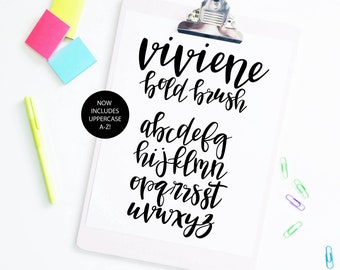 viviene
bold brush
NOW
INCLUDES
UPPERCASE
A-Z!
abcdefg
hijklmn
opqrrsst
uvwxyz